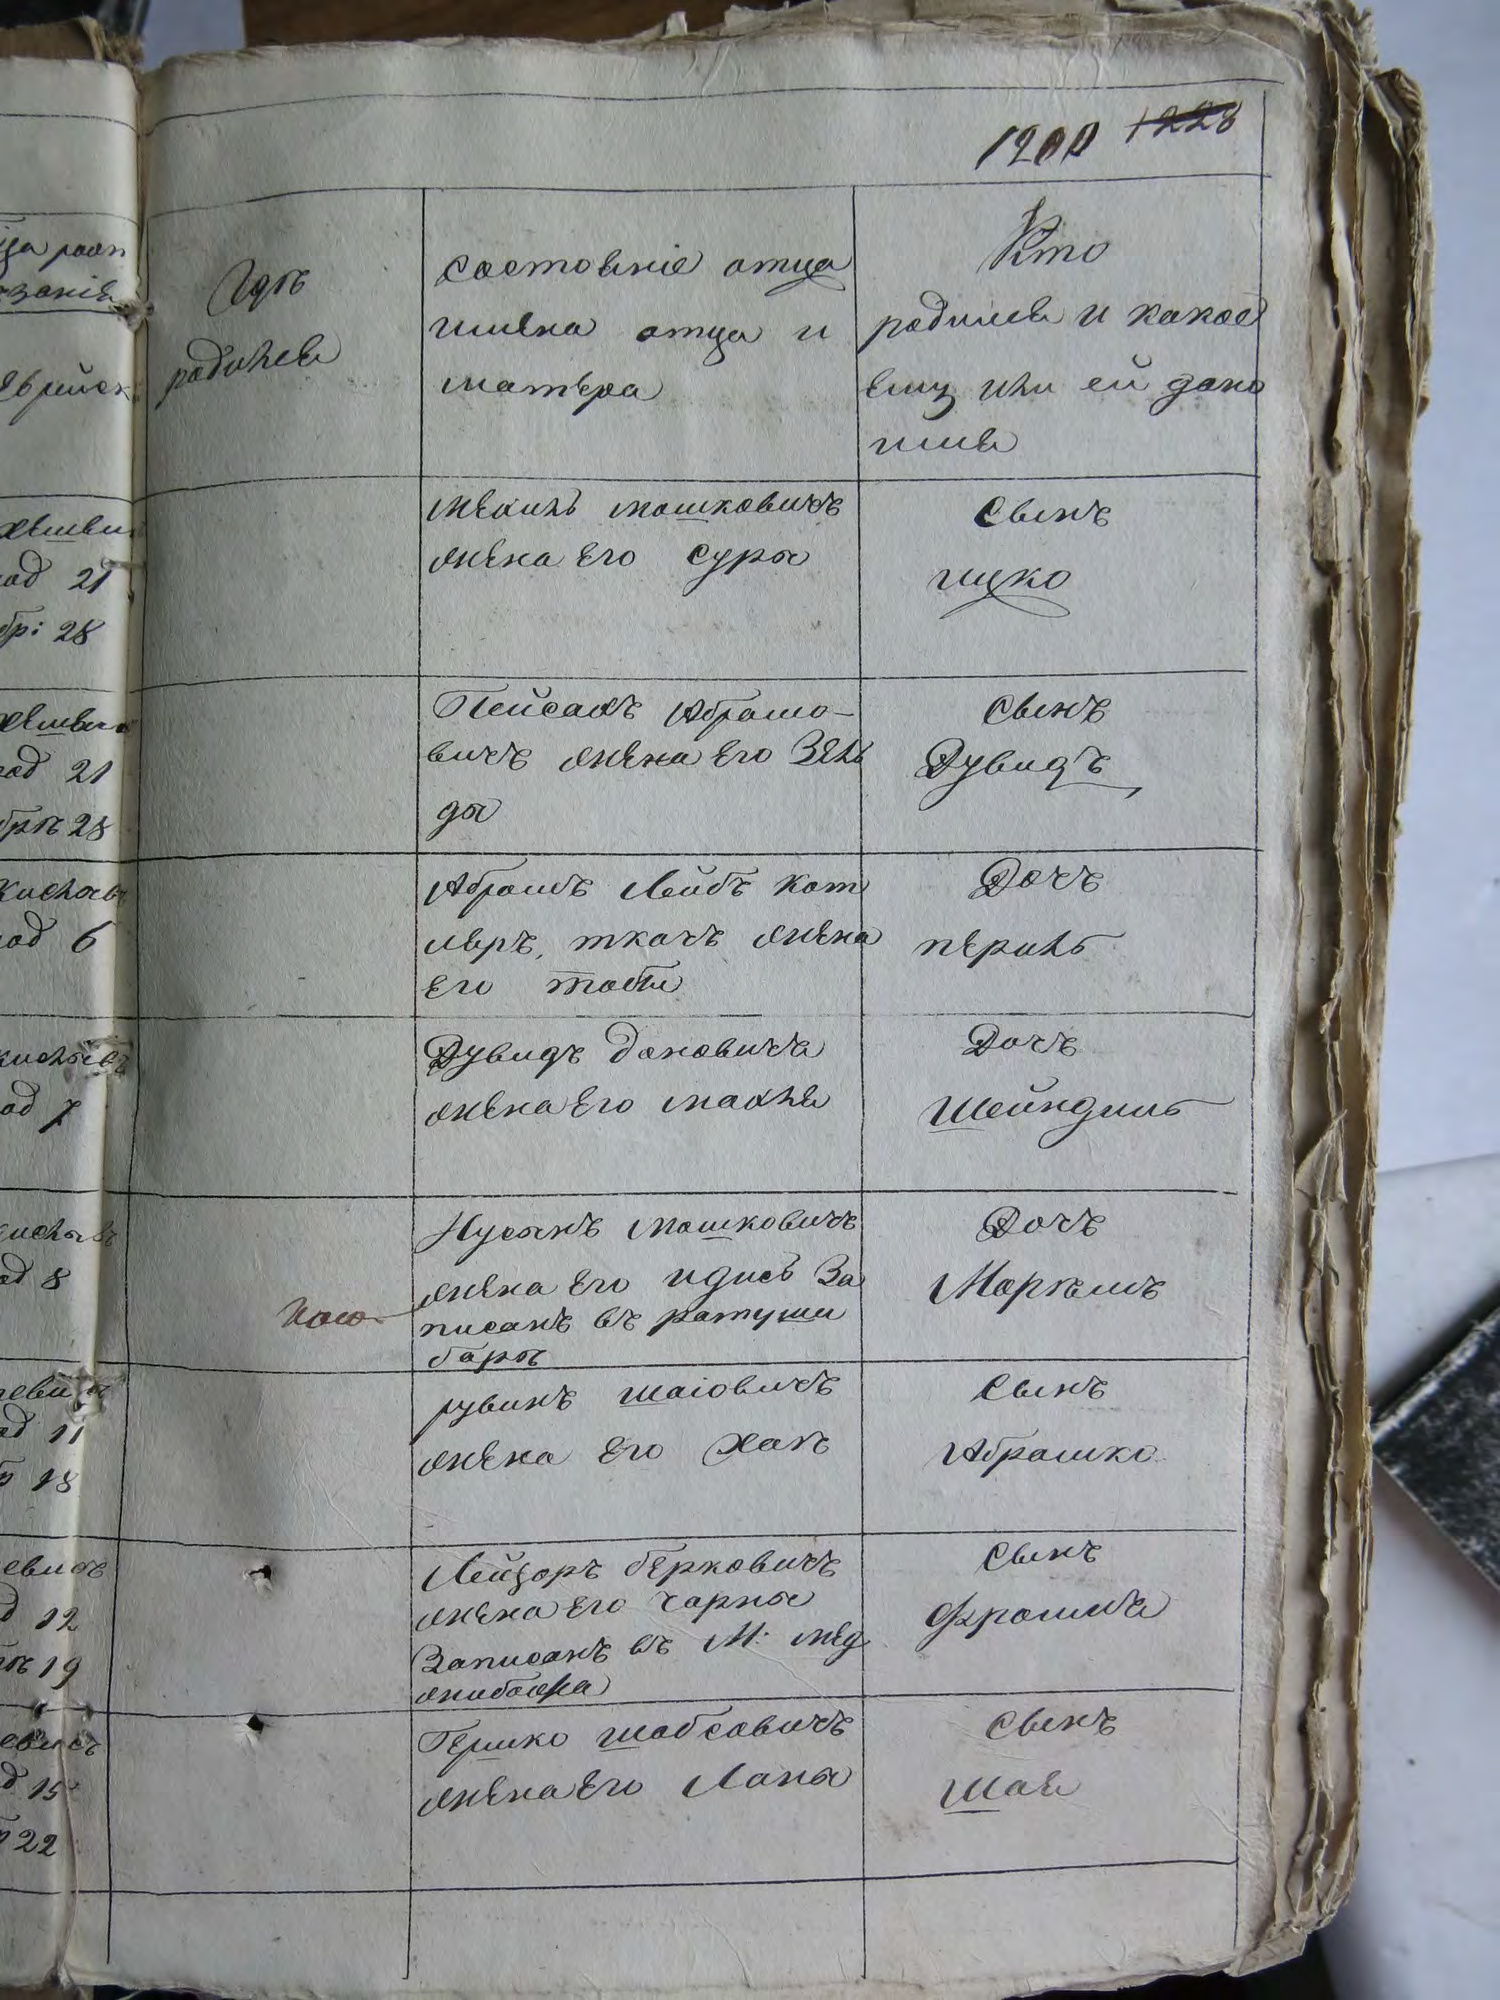 1228
Гдѣ
родился
состояніе отца
имена отца и
матери
Кто
родился и какое
ему или ей дано
имя
Мехиль Мошковичъ
жена его Суры
Сынъ
ицко
Пейсахъ Абрамо-
вичъ жена его Зель
ды
Сынъ
Дувидъ
Абрамъ Лейбъ Кот
ляръ, ткачъ жена
его Тоби
Дочъ
периль
Дувидъ Доновичъ
жена его Махля
Дочъ
Шейндиль
Нусынъ Мошковичъ
жена его идись За
писанъ въ ратуши
бары
Дочъ
Маргѣмъ
рувинъ шаіовичъ
жена его Хаи
Сынъ
Абрашко
Лейзоръ берковичъ
жена его чарны
Записанъ въ М: Мед
жибожа
Сынъ
Фроимъ
Гершко шабсовичъ
жена его Ханы
Сынъ
шая
21
28
21
28
6
7
8
11
18
12
19
15
22